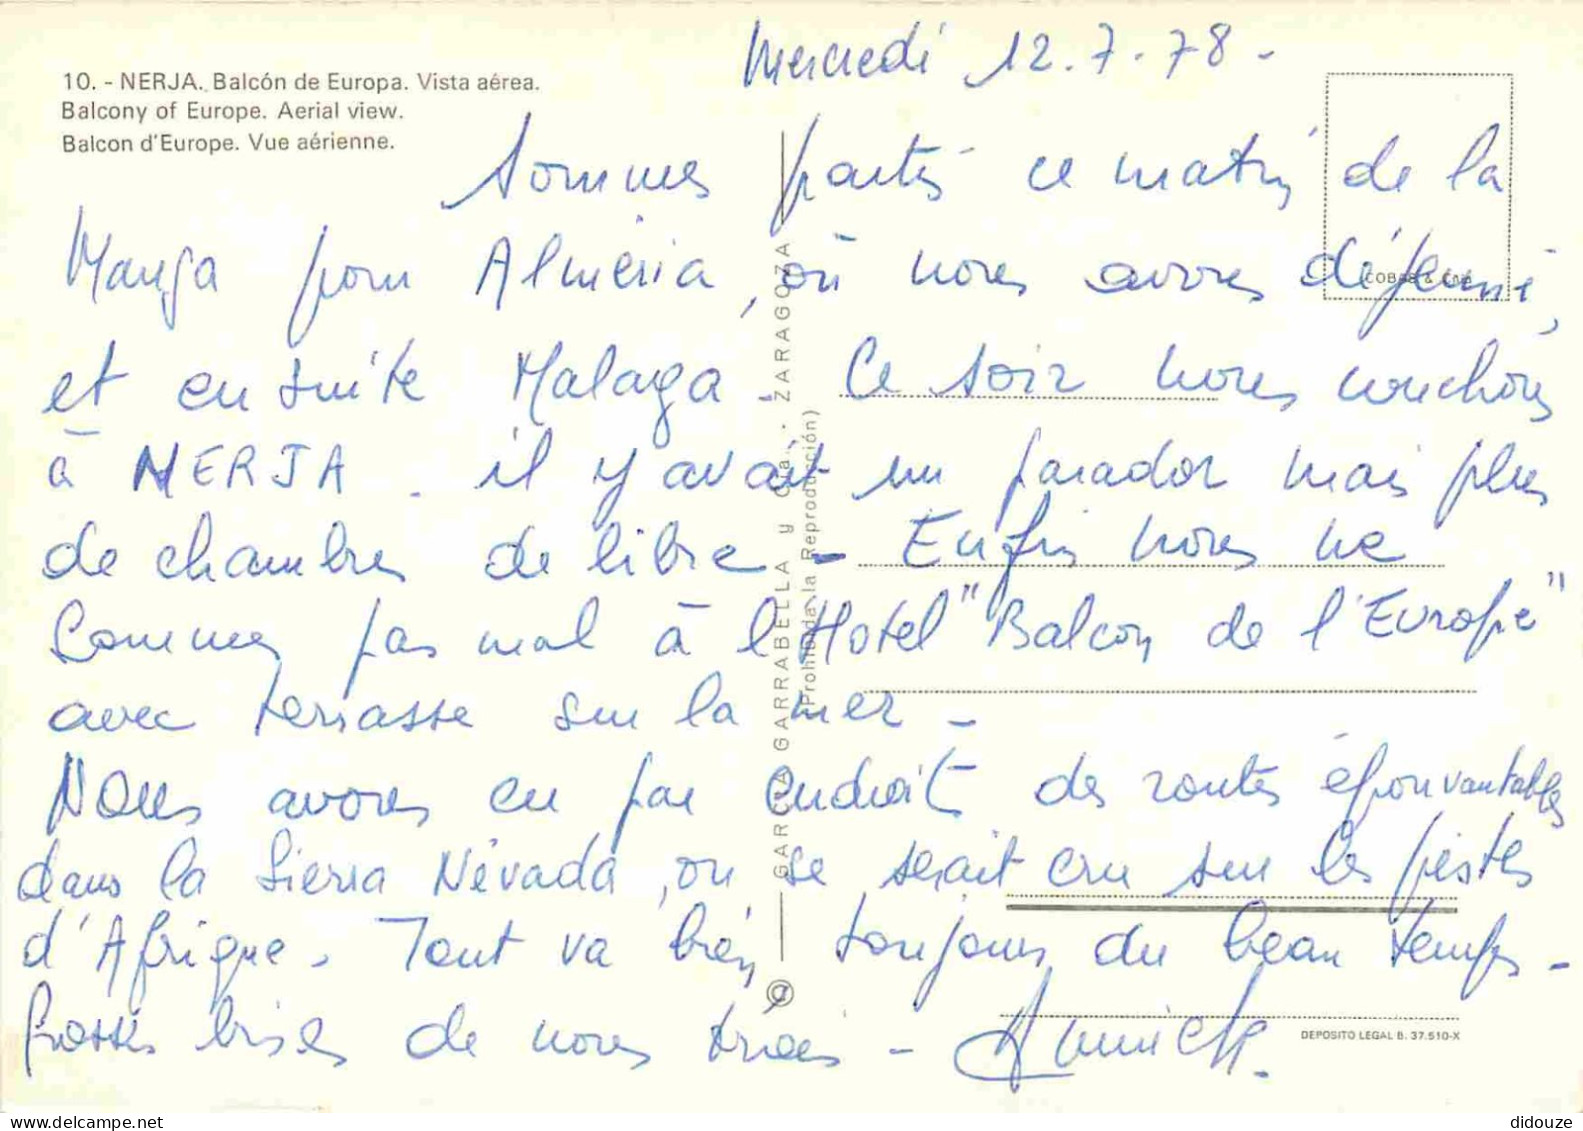 Mercredi 12.7.78 -
10. - NERJA. Balcón de Europa. Vista aérea.
Balcony of Europe. Aerial view.
Balcon d'Europe. Vue aérienne.
Sommes partis ce matin de la
Manga pour Almeria, où nous avons déjeuné,
et ensuite Malaga - Ce soir nous couchons
à NERJA. il y avait un parador mais plus
de chambres de libre - Enfin nous ne
sommes pas mal à l'Hotel "Balcon de l'Europe"
avec terrasse sur la mer -
Nous avons eu par endroits des routes épouvantables
dans la Sierra Névada, on se serait cru sur les pistes
d'Afrique. Tout va bien, toujours du beau temps -
Grosses bises de nous trois - Annick.
© GARCIA GARRABELLA y Cia. - ZARAGOZA
(Prohibida la Reproducción)
DEPOSITO LEGAL B. 37.510-X
didouze